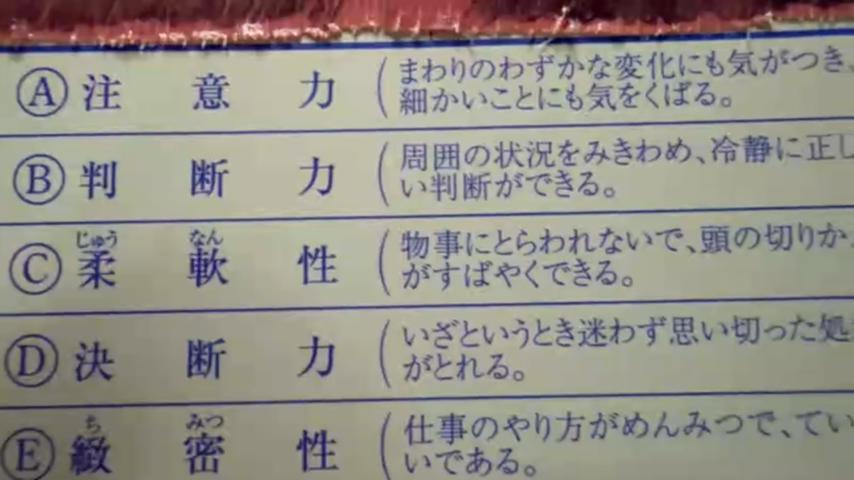 Ⓐ注意力(まわりのわずかな変化にも気がつき、
細かいことにも気をくばる。
Ⓑ判断力(周囲の状況をみきわめ、冷静に正し
い判断ができる。
じゅう なん
Ⓒ柔軟性(物事にとらわれないで、頭の切りか
がすばやくできる。
Ⓓ決断力(いざというとき迷わず思い切った処
がとれる。
ち みつ
Ⓔ緻密性(仕事のやり方がめんみつで、てい
いである。